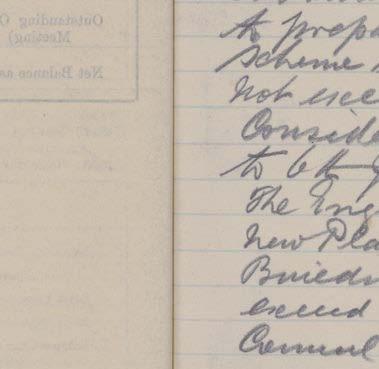 Outstanding O
Meeting)
Net Balance as
A propo
Scheme
not exce
Conside
to 6th
The Eng
new Pla
Buildin
exceed
Council